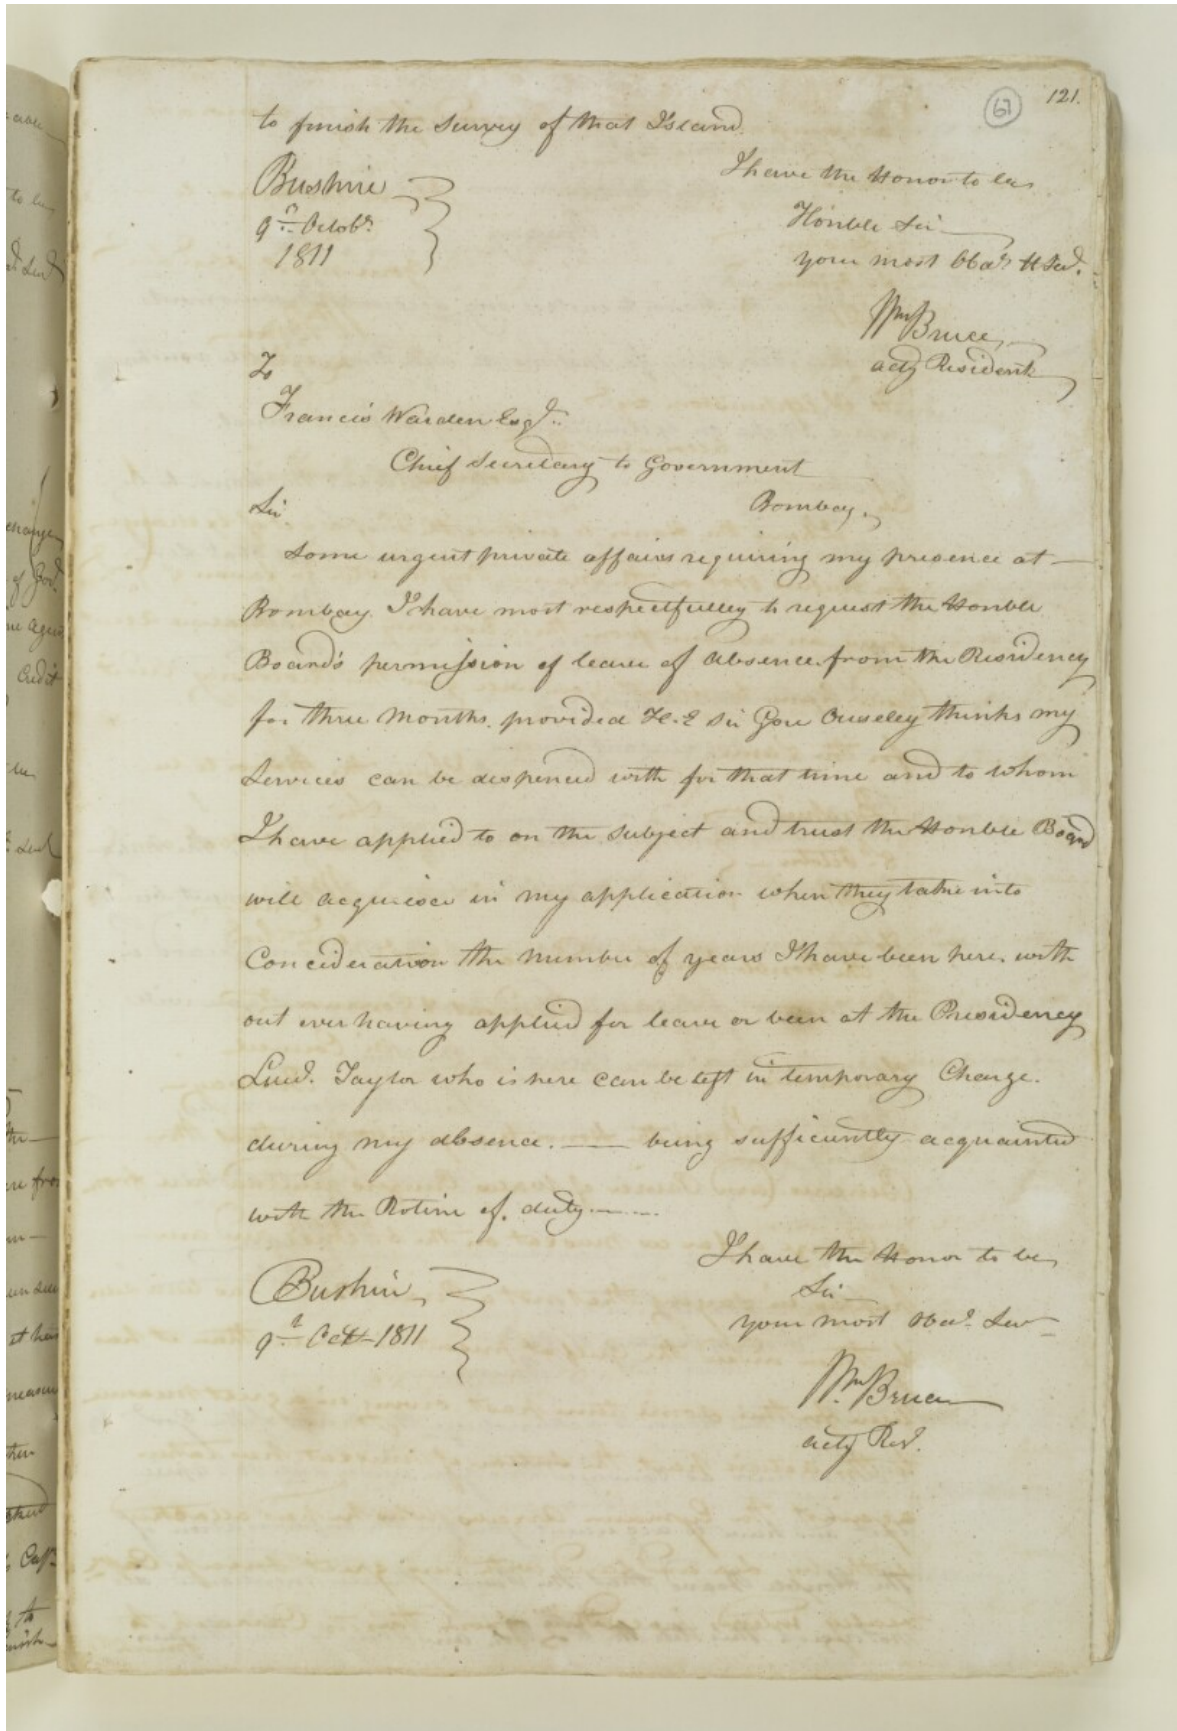 121.
61
to finish the Survey of that Island.
I have the Honor to be
Bushire
Honble Sir
9th Octobr.
your most Obdt. H Servt.
1811
Wm Bruce
actg Resident
To
Francis Warden Esqr.
Chief Secretary to Government
Bombay.
Sir
Some urgent private affairs requiring my presence at
Bombay I have most respectfully to request the Honble
Board's permission of leave of absence from the Residency
for three Months. provided H.E Sir Gore Ouseley thinks my
Services can be dispenced with for that time and to whom
I have applied to on the subject and trust the Honble Board
will acquiesce in my application when they take into
Concideration the number of years I have been here. with
out ever having applied for leave or been at the Presidency
Lieut. Taylor who is here can be left in temporary Charge.
during my absence. — being sufficiently acquainted
with the Rotine of. duty.
I have the Honor to be
Bushire
Sir
9th Oct 1811
your most Obdt. Servt
Wm. Bruce
actg Rest.